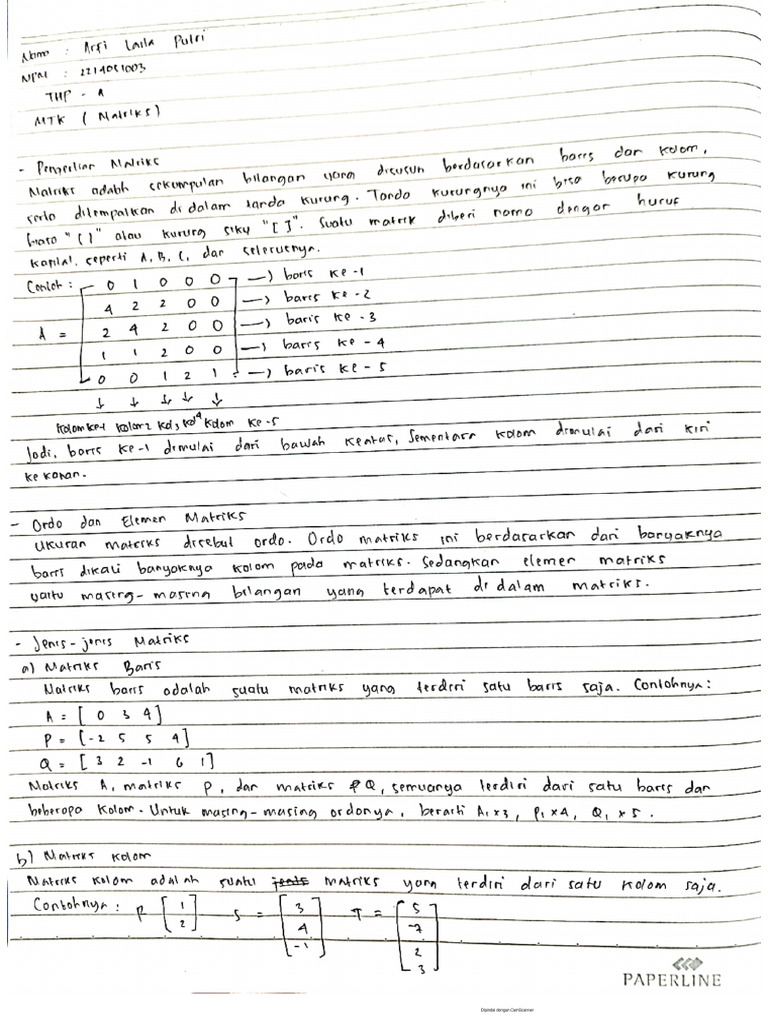 Nama : Arfi Laila Putri
NPM : 2214051003
THP - A
MTK ( Matriks)
- Pengertian Matriks
Matriks adalah sekumpulan bilangan yang disusun berdasarkan baris dan kolom,
serta ditempatkan di dalam tanda kurung. Tanda kurungnya ini bisa berupa kurung
biasa "( )" atau kurung siku "[ ]". Suatu matrik diberi nama dengan huruf
kapital, seperti A, B, C, dan seterusnya.
Contoh : 0 1 0 0 0 —> baris ke -1
4 2 2 0 0 —> baris ke -2
A = 2 4 2 0 0 —> baris ke - 3
1 1 2 0 0 —> baris ke - 4
0 0 1 2 1 —> baris ke - 5
↓ ↓ ↓ ↓ ↓
Kolom ke-1 kolom 2 kol 3 kol 4 kolom ke-5
Jadi, baris ke-1 dimulai dari bawah keatas, Sementara kolom dimulai dari kiri
ke kanan.
- Ordo dan Elemen Matriks
Ukuran matriks disebut ordo. Ordo matriks ini berdasarkan dari banyaknya
baris dikali banyaknya kolom pada matriks. Sedangkan elemen matriks
yaitu masing-masing bilangan yang terdapat di dalam matriks.
- Jenis-jenis Matriks
a) Matriks Baris
Matriks baris adalah suatu matriks yang terdiri satu baris saja. Contohnya :
A = [ 0 3 4 ]
P = [ -2 5 5 4 ]
Q = [ 3 2 -1 6 1 ]
Matriks A, matriks P, dan matriks Q, semuanya terdiri dari satu baris dan
beberapa kolom. Untuk masing-masing ordonya, berarti A1x3, P1x4, Q1x5.
b) Matriks Kolom
Matriks kolom adalah suatu jenis matriks yang terdiri dari satu kolom saja.
Contohnya : R [ 1 S = [ 3 T = [ 5
2 ] 4 -7
-1 ] 2
3 ]
PAPERLINE
Dipindai dengan CamScanner